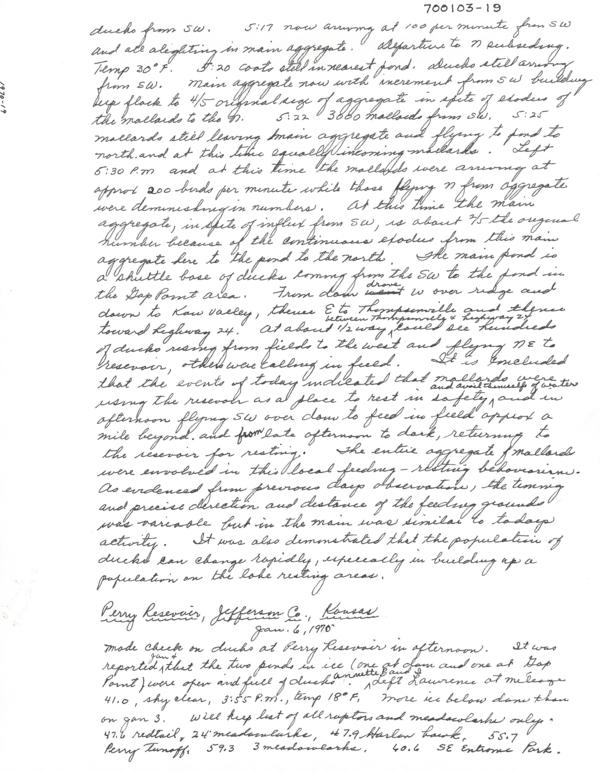 700103-19
ducks from SW. 5:17 now arriving at 100 per minute from SW
and all alighting in main aggregate. Departure to N subsiding.
Temp 30° F. 5:20 Coots still in nearest pond. Ducks still arriving
from SW. Main aggregate now with increment from SW building
up flock to 4/5 original size of aggregate in spite of exodus of
the mallards to the N. 5:22 3000 mallards from SW. 5:25
mallards still leaving main aggregate and flying to pond to
north and at this time equally incoming mallards. Left
5:30 P.M and at this time the mallards were arriving at
approx 200 birds per minute while those flying N from aggregate
were deminishing in numbers. At this time the main
aggregate, in spite of influx from SW, is about 2/5 the original
number because of the continuous exodus from this main
aggregate here to the pond to the north. The main pond is
a shuttle base of ducks coming from the SW to the pond in
the Gap Point area. From dam drove W over ridge and
down to Kaw Valley, thence E to Thompsonville and thence
toward highway 24. At about 1/2 way between Thompsonville & highway 24, could see hundreds
of ducks rising from fields to the west and flying NE to
reservoir, others were calling in field. It is concluded
that the events of today indicated that mallards were
using the resevoir as a place to rest in safety, and avail themselfs of water and in
afternoon flying SW over dam to feed in field approx a
mile beyond, and from late afternoon to dark, returning to
the resevoir for resting. The entire aggregate of mallards
were envolved in this local feeding - resting behaviorism.
As evidenced from previous days observation, the timing
and precise direction and distance of the feeding grounds
was variable but in the main was similar to todays
activity. It was also demonstrated that the population of
ducks can change rapidly, especially in building up a
population on the lake resting areas.
Perry Resevoir, Jefferson Co., Kansas
Jan. 6, 1970
Made check on ducks at Perry Resevoir in afternoon. It was
reported Jan 4 that the two ponds in ice (one at dam and one at Gap
Point) were open and full of ducks. Annette and I Left Lawrence at mileage
41.0, sky clear, 3:55 P.M., temp 18° F. More ice below dam than
on Jan 3. Will keep list of all raptors and meadowlarks only.
47.6 redtail, 24 meadowlarks, 47.9 Harlan hawk, 55.7
Perry turnoff. 59.3 3 meadowlarks. 60.6 SE Entrance Park.